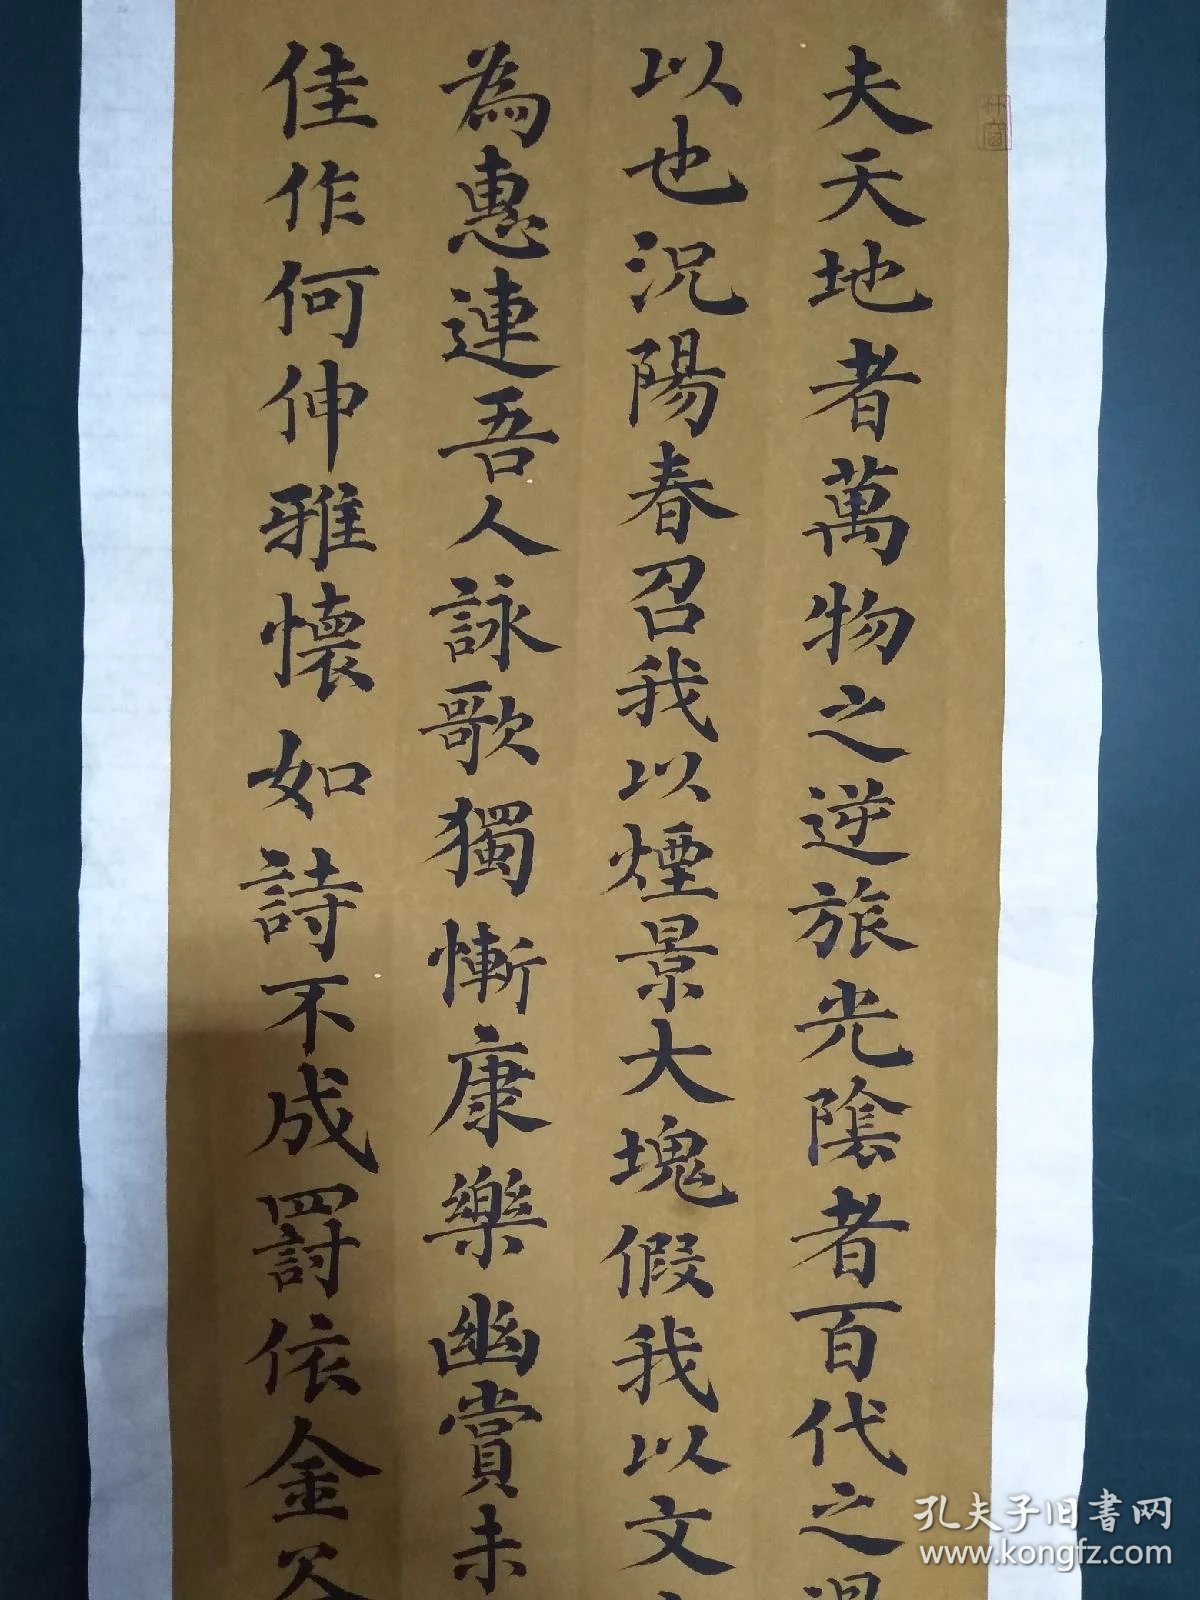 夫天地者萬物之逆旅光陰者百代之過
以也況陽春召我以煙景大塊假我以文
為惠連吾人詠歌獨慚康樂幽賞未
佳作何伸雅懷如詩不成罰依金谷
孔夫子旧书网
www.kongfz.com